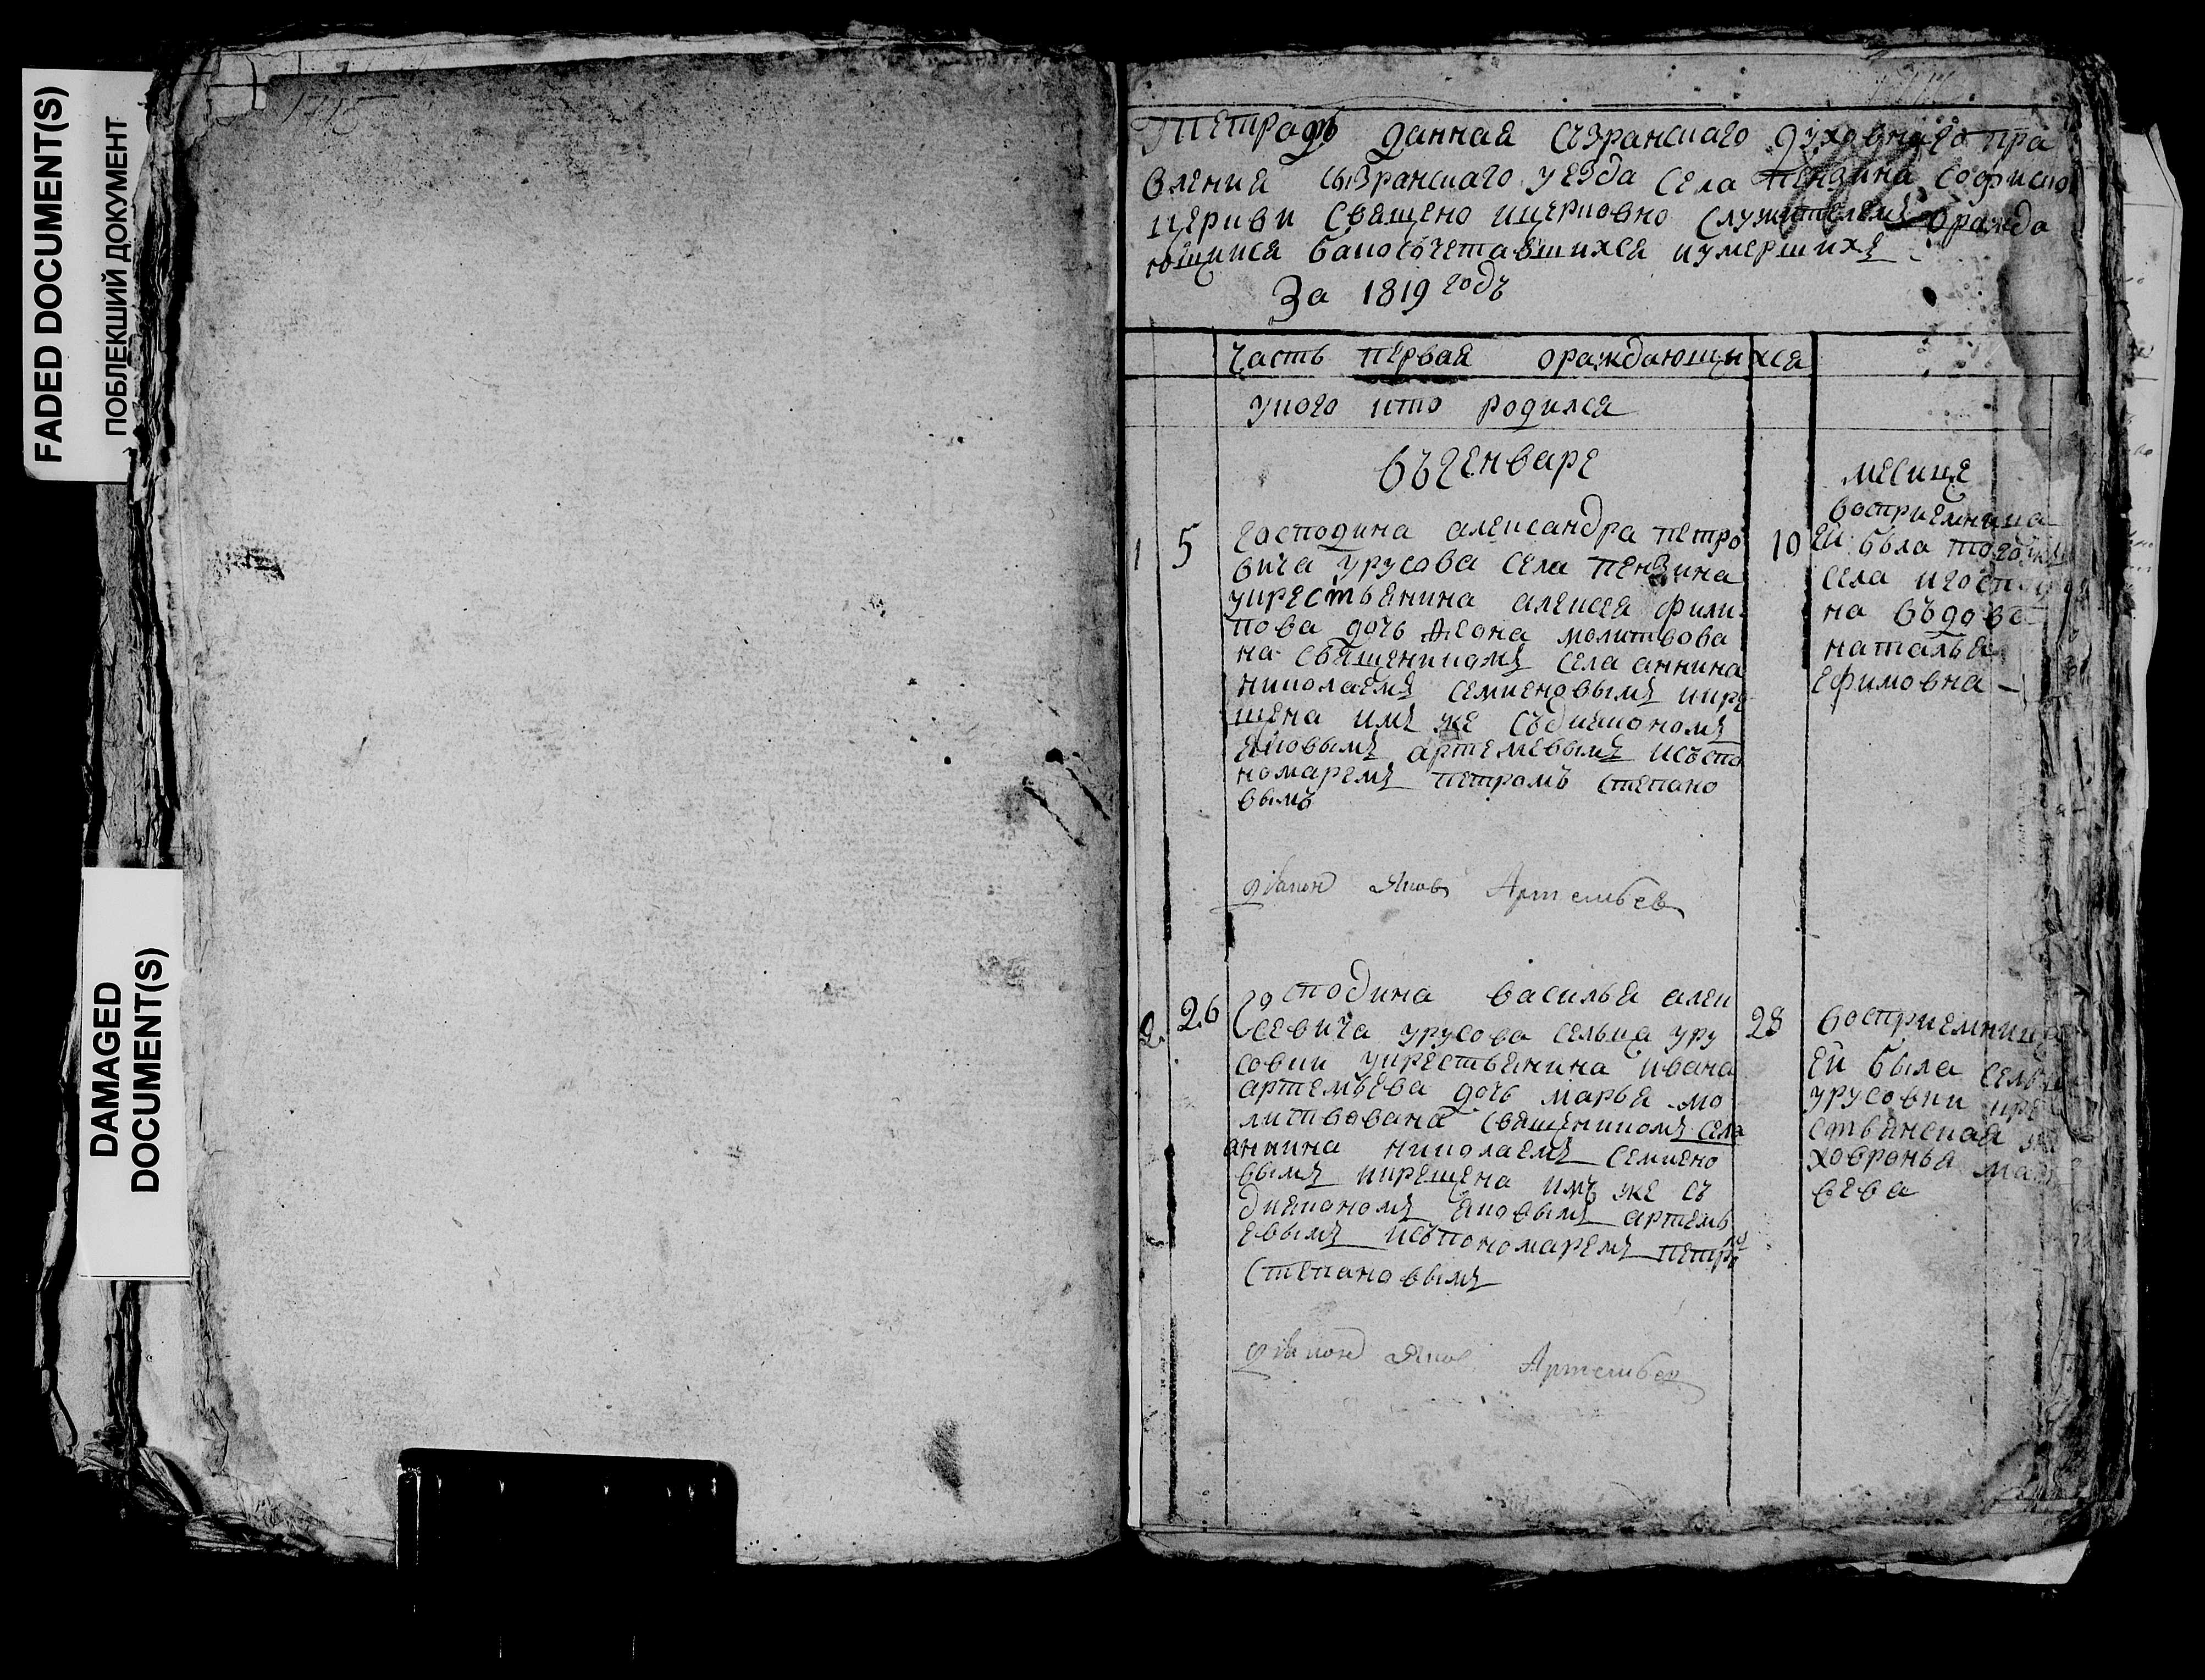 FADED DOCUMENT(S)
ПОБЛЕКШИЙ ДОКУМЕНТ
DAMAGED
DOCUMENT(S)
1715
Тетрадь данная Съзранскаго духовнаго пра
вления сызранскаго уезда села пензина софиской
церкви священо ицерковно служителемъ оражда
ющихся бакосочетавшихся иумершихъ
За 1819 годъ
Часть первая ораждающихся
укого кто родился
въгенваре месице
1 5 господина александра петро
вича урусова села пензина
укрестьянина алексея фили
пова дочь молитвова
на священникомъ села аннина
николаемъ семиеновымъ икре
щена имъ же съдияконамъ
яковымъ артемевымъ исъпо
номаремъ петромъ степано
вымъ
10 восприемница
ей была тогож
села
на въдова
наталья
ефимовна
диакон Яков Артемьев
2 26 господина василья алек
сеевича урусова сельца уру
совки укрестьянина ивана
артемьева дочь марья мо
литвована священникомъ села
аннина николаемъ семиено
вымъ икрещена имъ же съ
дияконамъ яковымъ артемь
евымъ исъпономаремъ петромъ
степановымъ
28 восприемница
ей была сельца
урусовки кре
стьянская
ховронья мат
вева
диакон Яков Артемьев